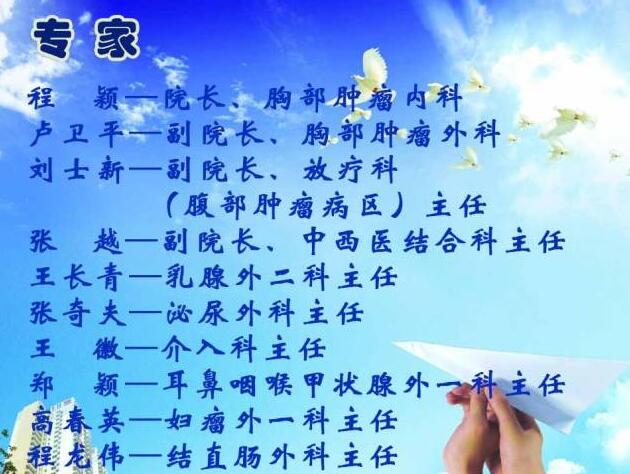 专家
程 颖—院长、胸部肿瘤内科
卢卫平—副院长、胸部肿瘤外科
刘士新—副院长、放疗科
（腹部肿瘤病区）主任
张 越—副院长、中西医结合科主任
王长青—乳腺外二科主任
张奇夫—泌尿外科主任
王 徽—介入科主任
郑 颖—耳鼻咽喉甲状腺外一科主任
高春英—妇瘤外一科主任
程龙伟—结直肠外科主任